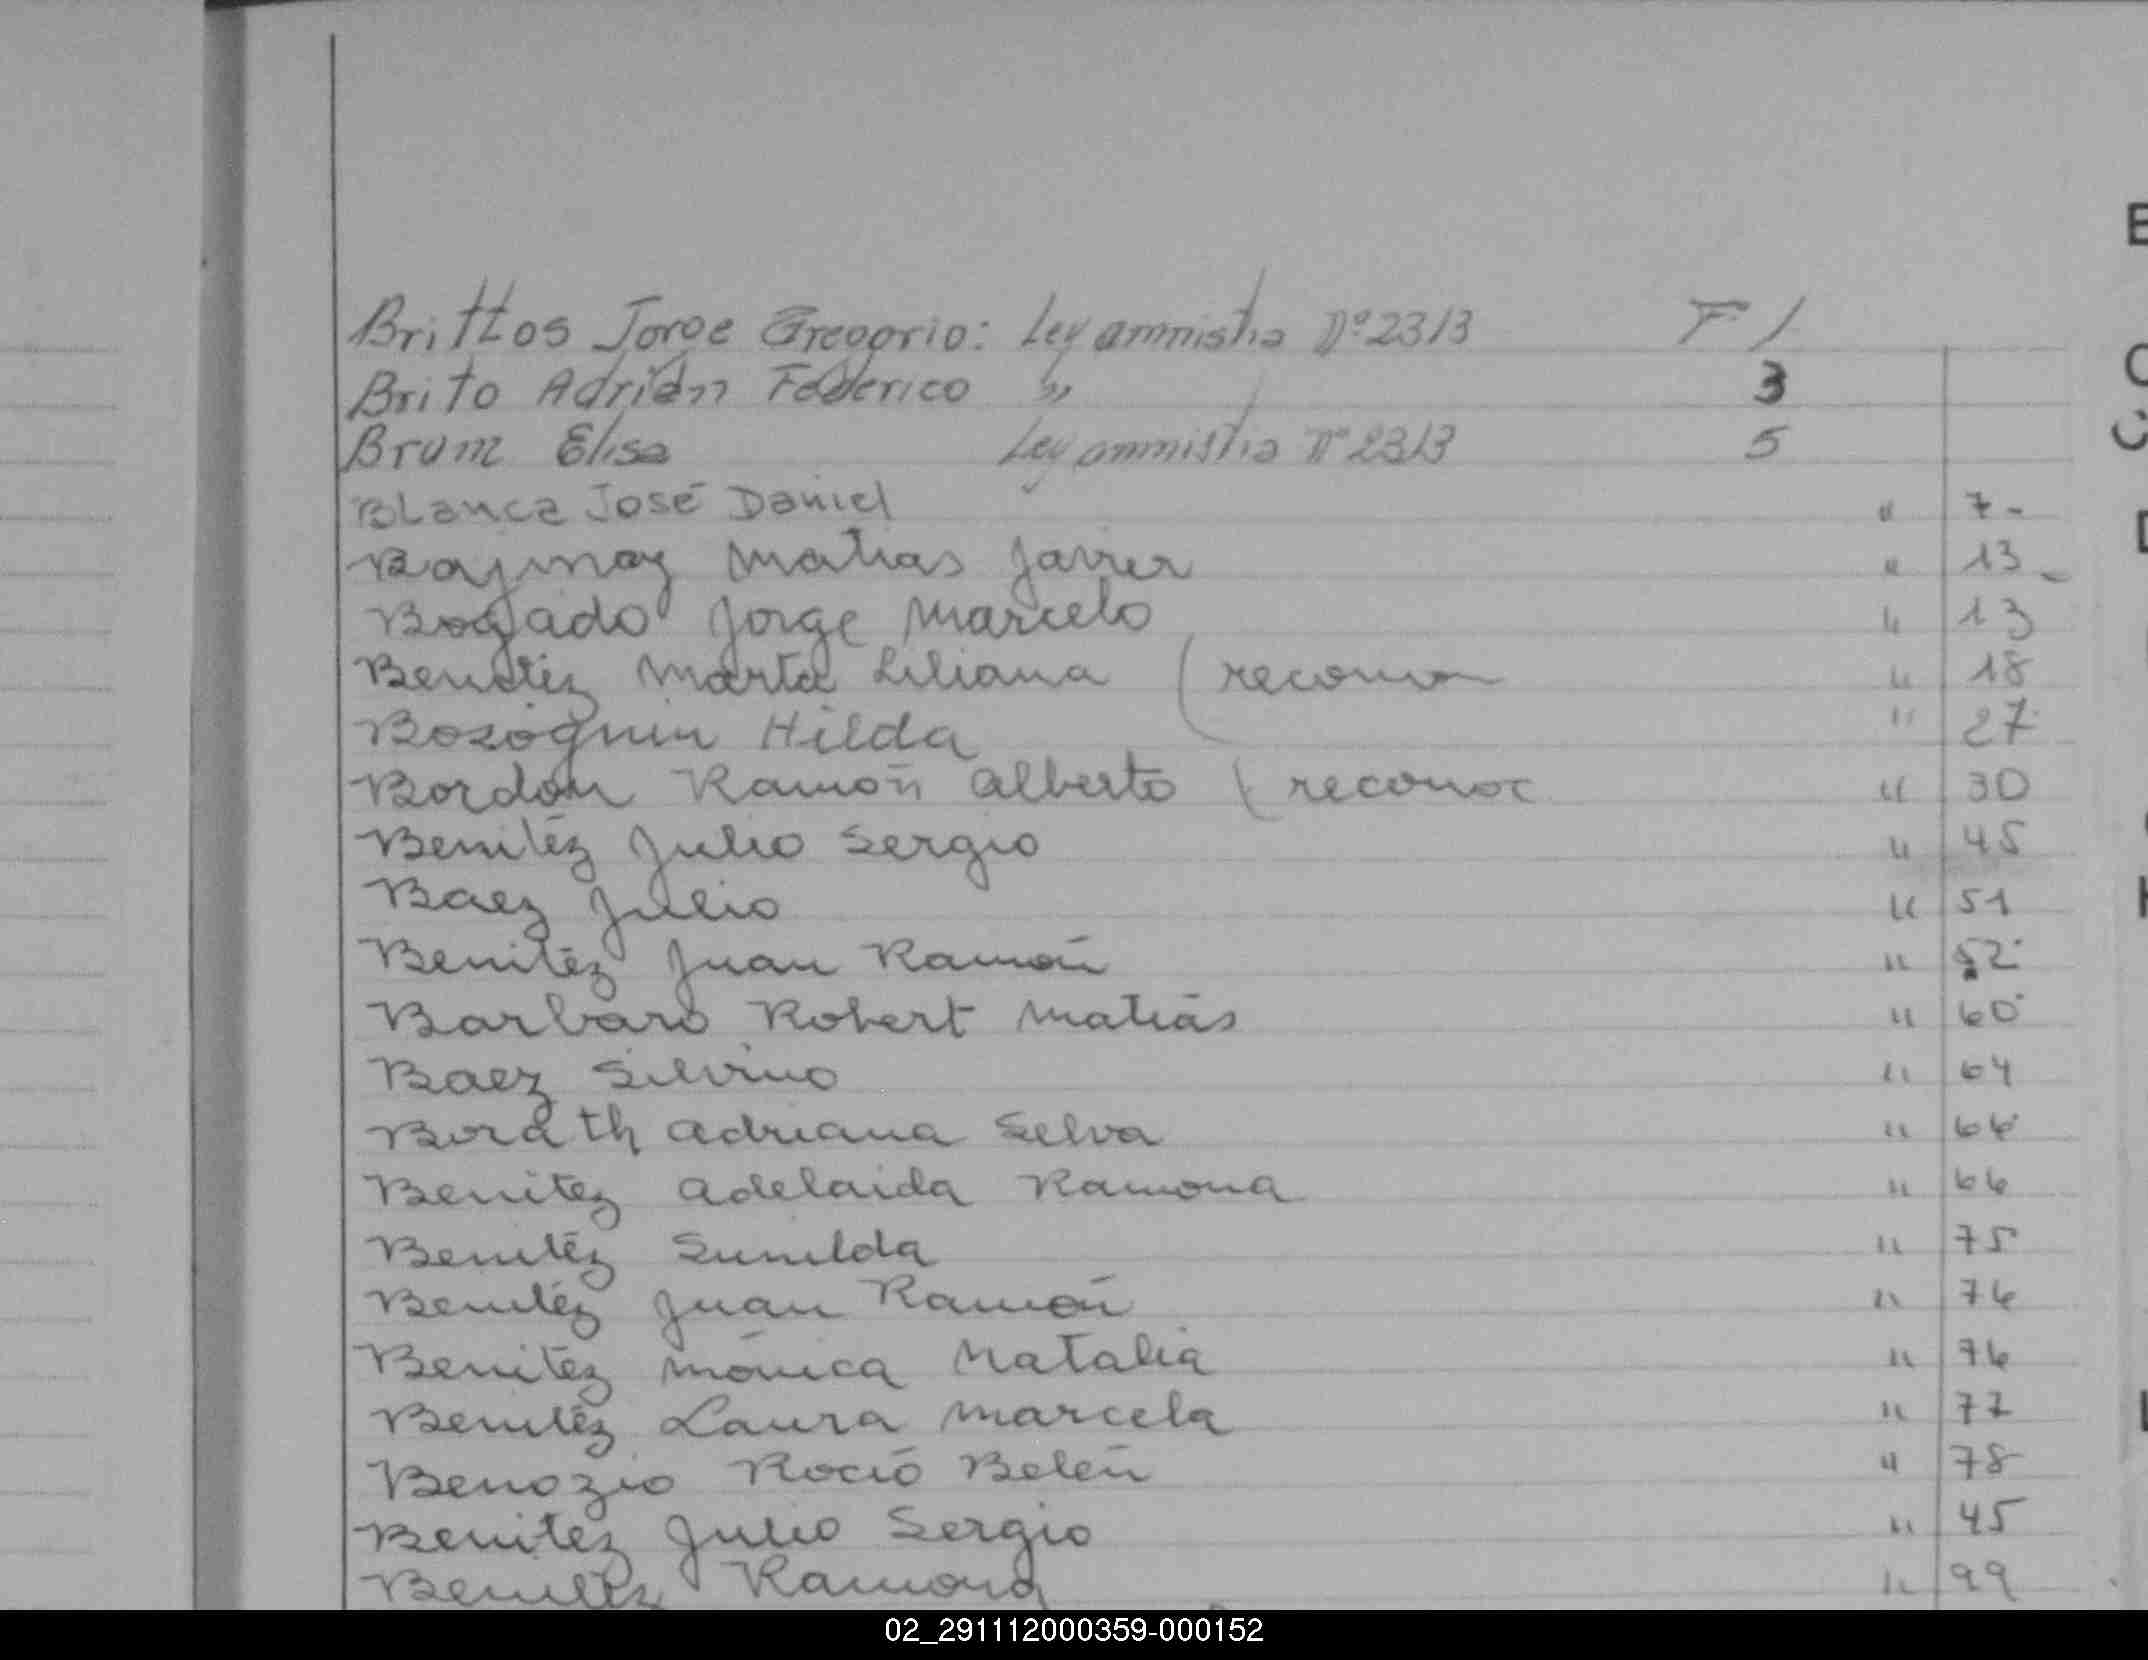 Brittos Jorge Gregorio: Ley amnistia Nº 2313 F 1
Brito Adrián Federico " 3
Brum Elisa Ley amnistia Nº 2313 5
Blanca José Daniel " 7-
Baymay Matias Javier " 13-
Bogado Jorge Marcelo " 13
Benitéz Marta Liliana ( " 18
Hilda " 27
Bordón Ramoń Alberto ( reconoc " 30
Benitéz Julio Sergio " 45
Baez Julio " 51
Benitéz Juan Ramoń " 52
Barbaro Robert Matiás " 60
Baez Silvino " 64
Adriana Selva " 66
Benitez Adelaida Ramona " 66
Benitéz Sunilda " 75
Benitéz Juan Ramoń " 76
Benitéz Mónica Natalia " 76
Benitéz Laura Marcela " 77
Benozio Roció Beleń " 78
Benitez Julio Sergio " 45
Benitéz Ramona " 99
B
C
D
H
L
02_291112000359-000152